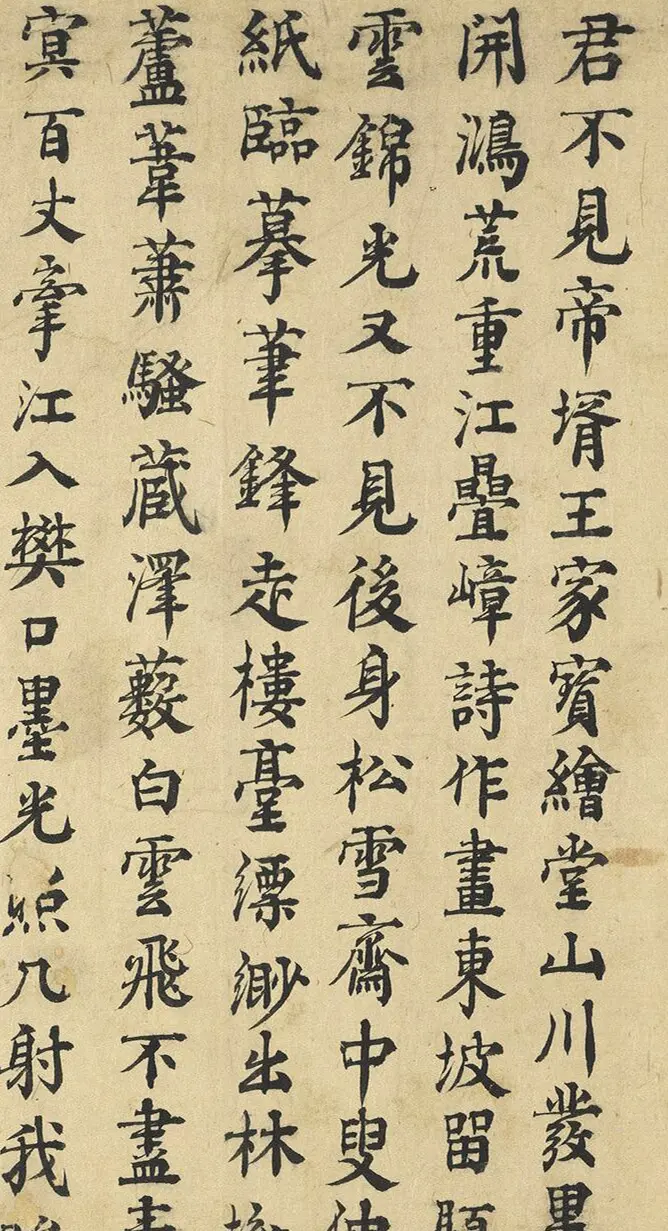 君不見帝壻王家寳繪堂山川發
開鴻荒重江疊嶂詩作畫東坡留
雲錦光又不見後身松雪齋中叟
紙臨摹筆鋒走樓臺縹緲出林
蘆葦蕭騷蔵澤藪白雲飛不盡
㝠百丈牽江入樊口墨光照几射我